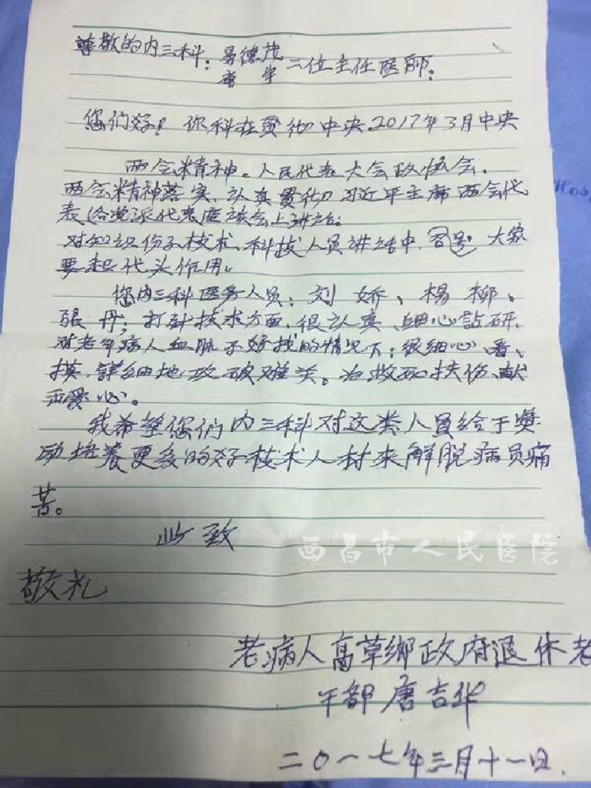 尊敬的内三科：易德茂
二位主任医师：
您们好！你科在贯彻中央2017年3月中央
两会精神。人民代表大会政协会。
两会精神落实、认真贯彻习近平主席两会代
表各党派代表座谈会上讲话。
对知识份子技术、科技人员讲话中 大家
要起代头作用。
您内三科医务人员：刘娇、杨柳、
张丹；打针技术方面，很认真、细心钻研，
对老年病人血脉不好找的情况下；很细心看、
摸、详细地攻破难关。为救死扶伤、献
爱心。
我希望您们内三科对这类人员给于奖
励培养更多的好技术人材来解脱病员痛
苦。
此致
敬礼
老病人高草乡政府退休老
干部唐吉华
二〇一七年三月十一日.
西昌市人民医院